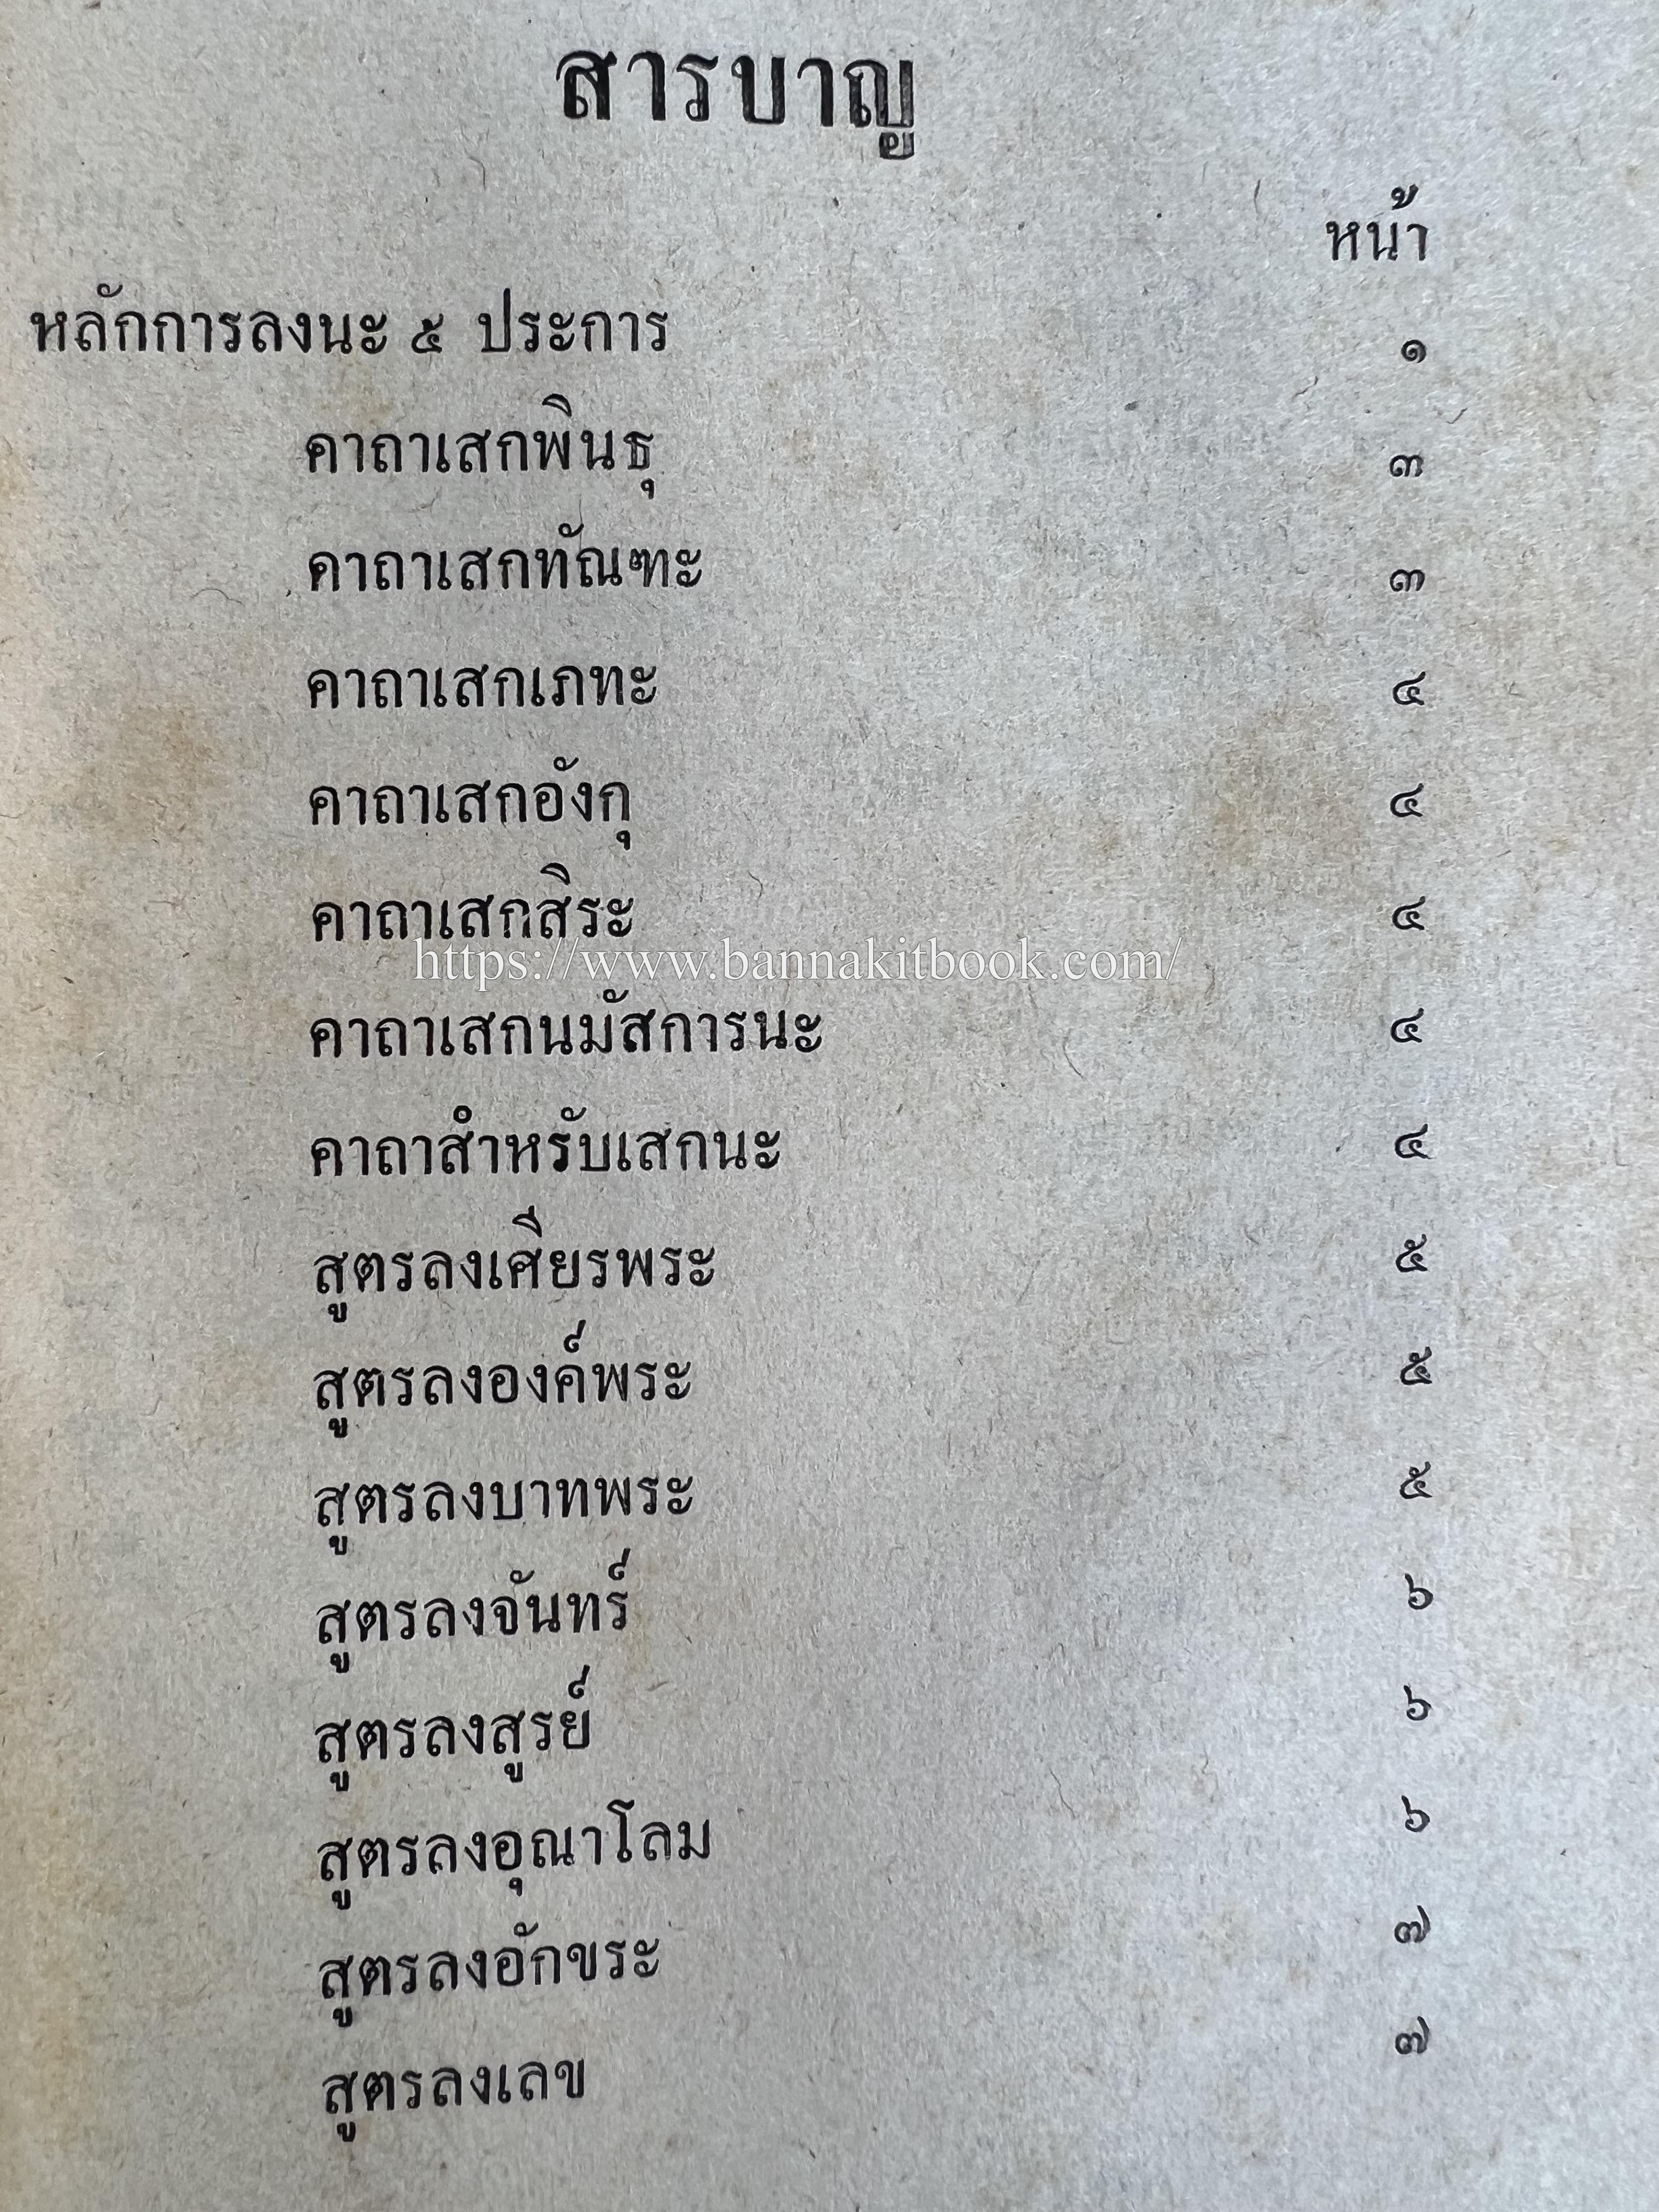 สารบาญ
หน้า
หลักการลงนะ ๕ ประการ ๑
คาถาเสกพินธุ ๓
คาถาเสกทัณฑะ ๓
คาถาเสกเภทะ ๔
คาถาเสกอังกุ ๔
คาถาเสกสิระ ๔
https://www.bannakitbook.com/
คาถาเสกนมัสการนะ ๔
คาถาสำหรับเสกนะ ๔
สูตรลงเศียรพระ ๕
สูตรลงองค์พระ ๕
สูตรลงบาทพระ ๕
สูตรลงจันทร์ ๖
สูตรลงสูรย์ ๖
สูตรลงอุณาโลม ๖
สูตรลงอักขระ ๗
สูตรลงเลข ๗